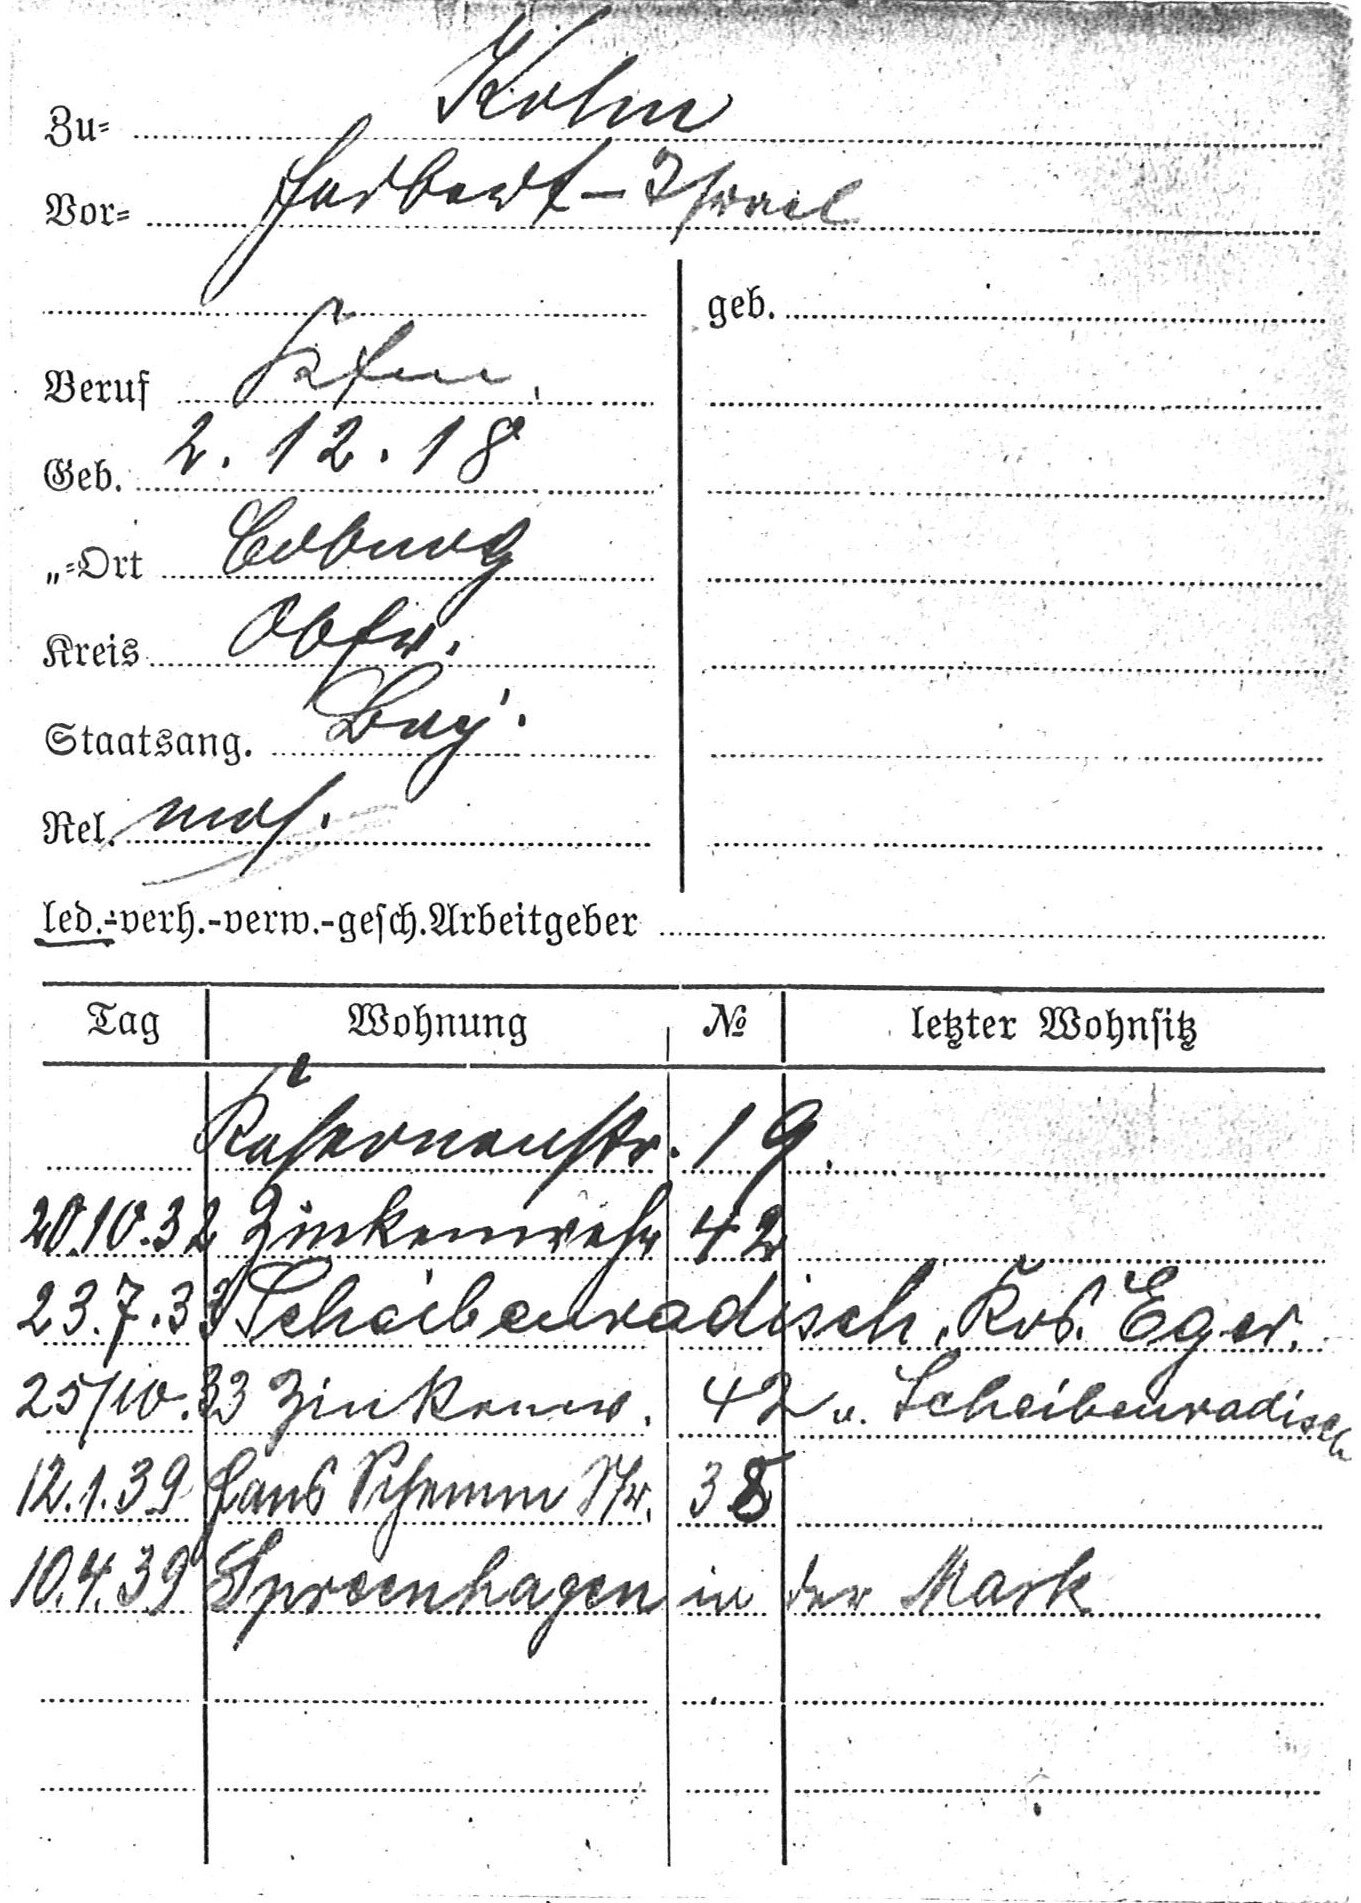 Zu= Kohn
Vor= Herbert-Israel
geb.
Beruf Kfm.
Geb. 2.12.18
„=Ort Coburg
Kreis Obfr.
Staatsang. Bay.
Rel. mos.
led.-verh.-verw.-gesch. Arbeitgeber
Tag Wohnung № letzter Wohnsitz
Kasernenstr. 19.
20.10.32 Zinkenwehr 42
23.7.33 Scheibenradisch, Krs. Eger.
25/10.33 Zinkenw. 42 v. Scheibenradisch
12.1.39 Hans Schemm Str. 38
10.4.39 Spreenhagen in der Mark